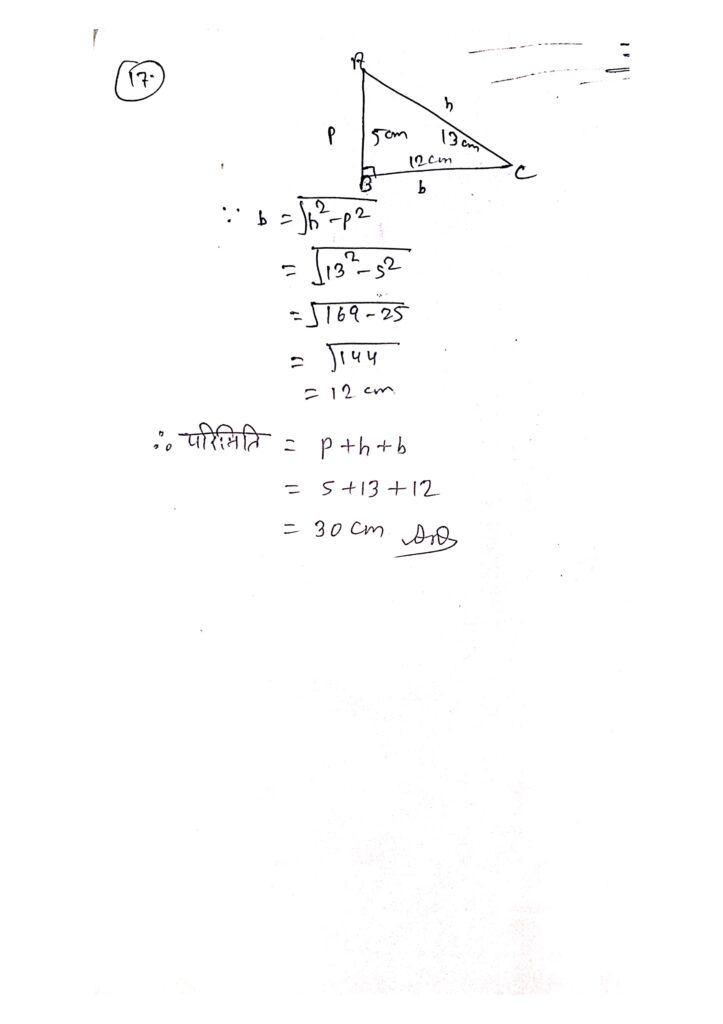 17.
A
h
P 5cm 13cm
12cm
B b C
∵ b = √h²-p²
= √13²-5²
= √169-25
= √144
= 12 cm
∴ परिमिति = p+h+b
= 5+13+12
= 30 cm Ans